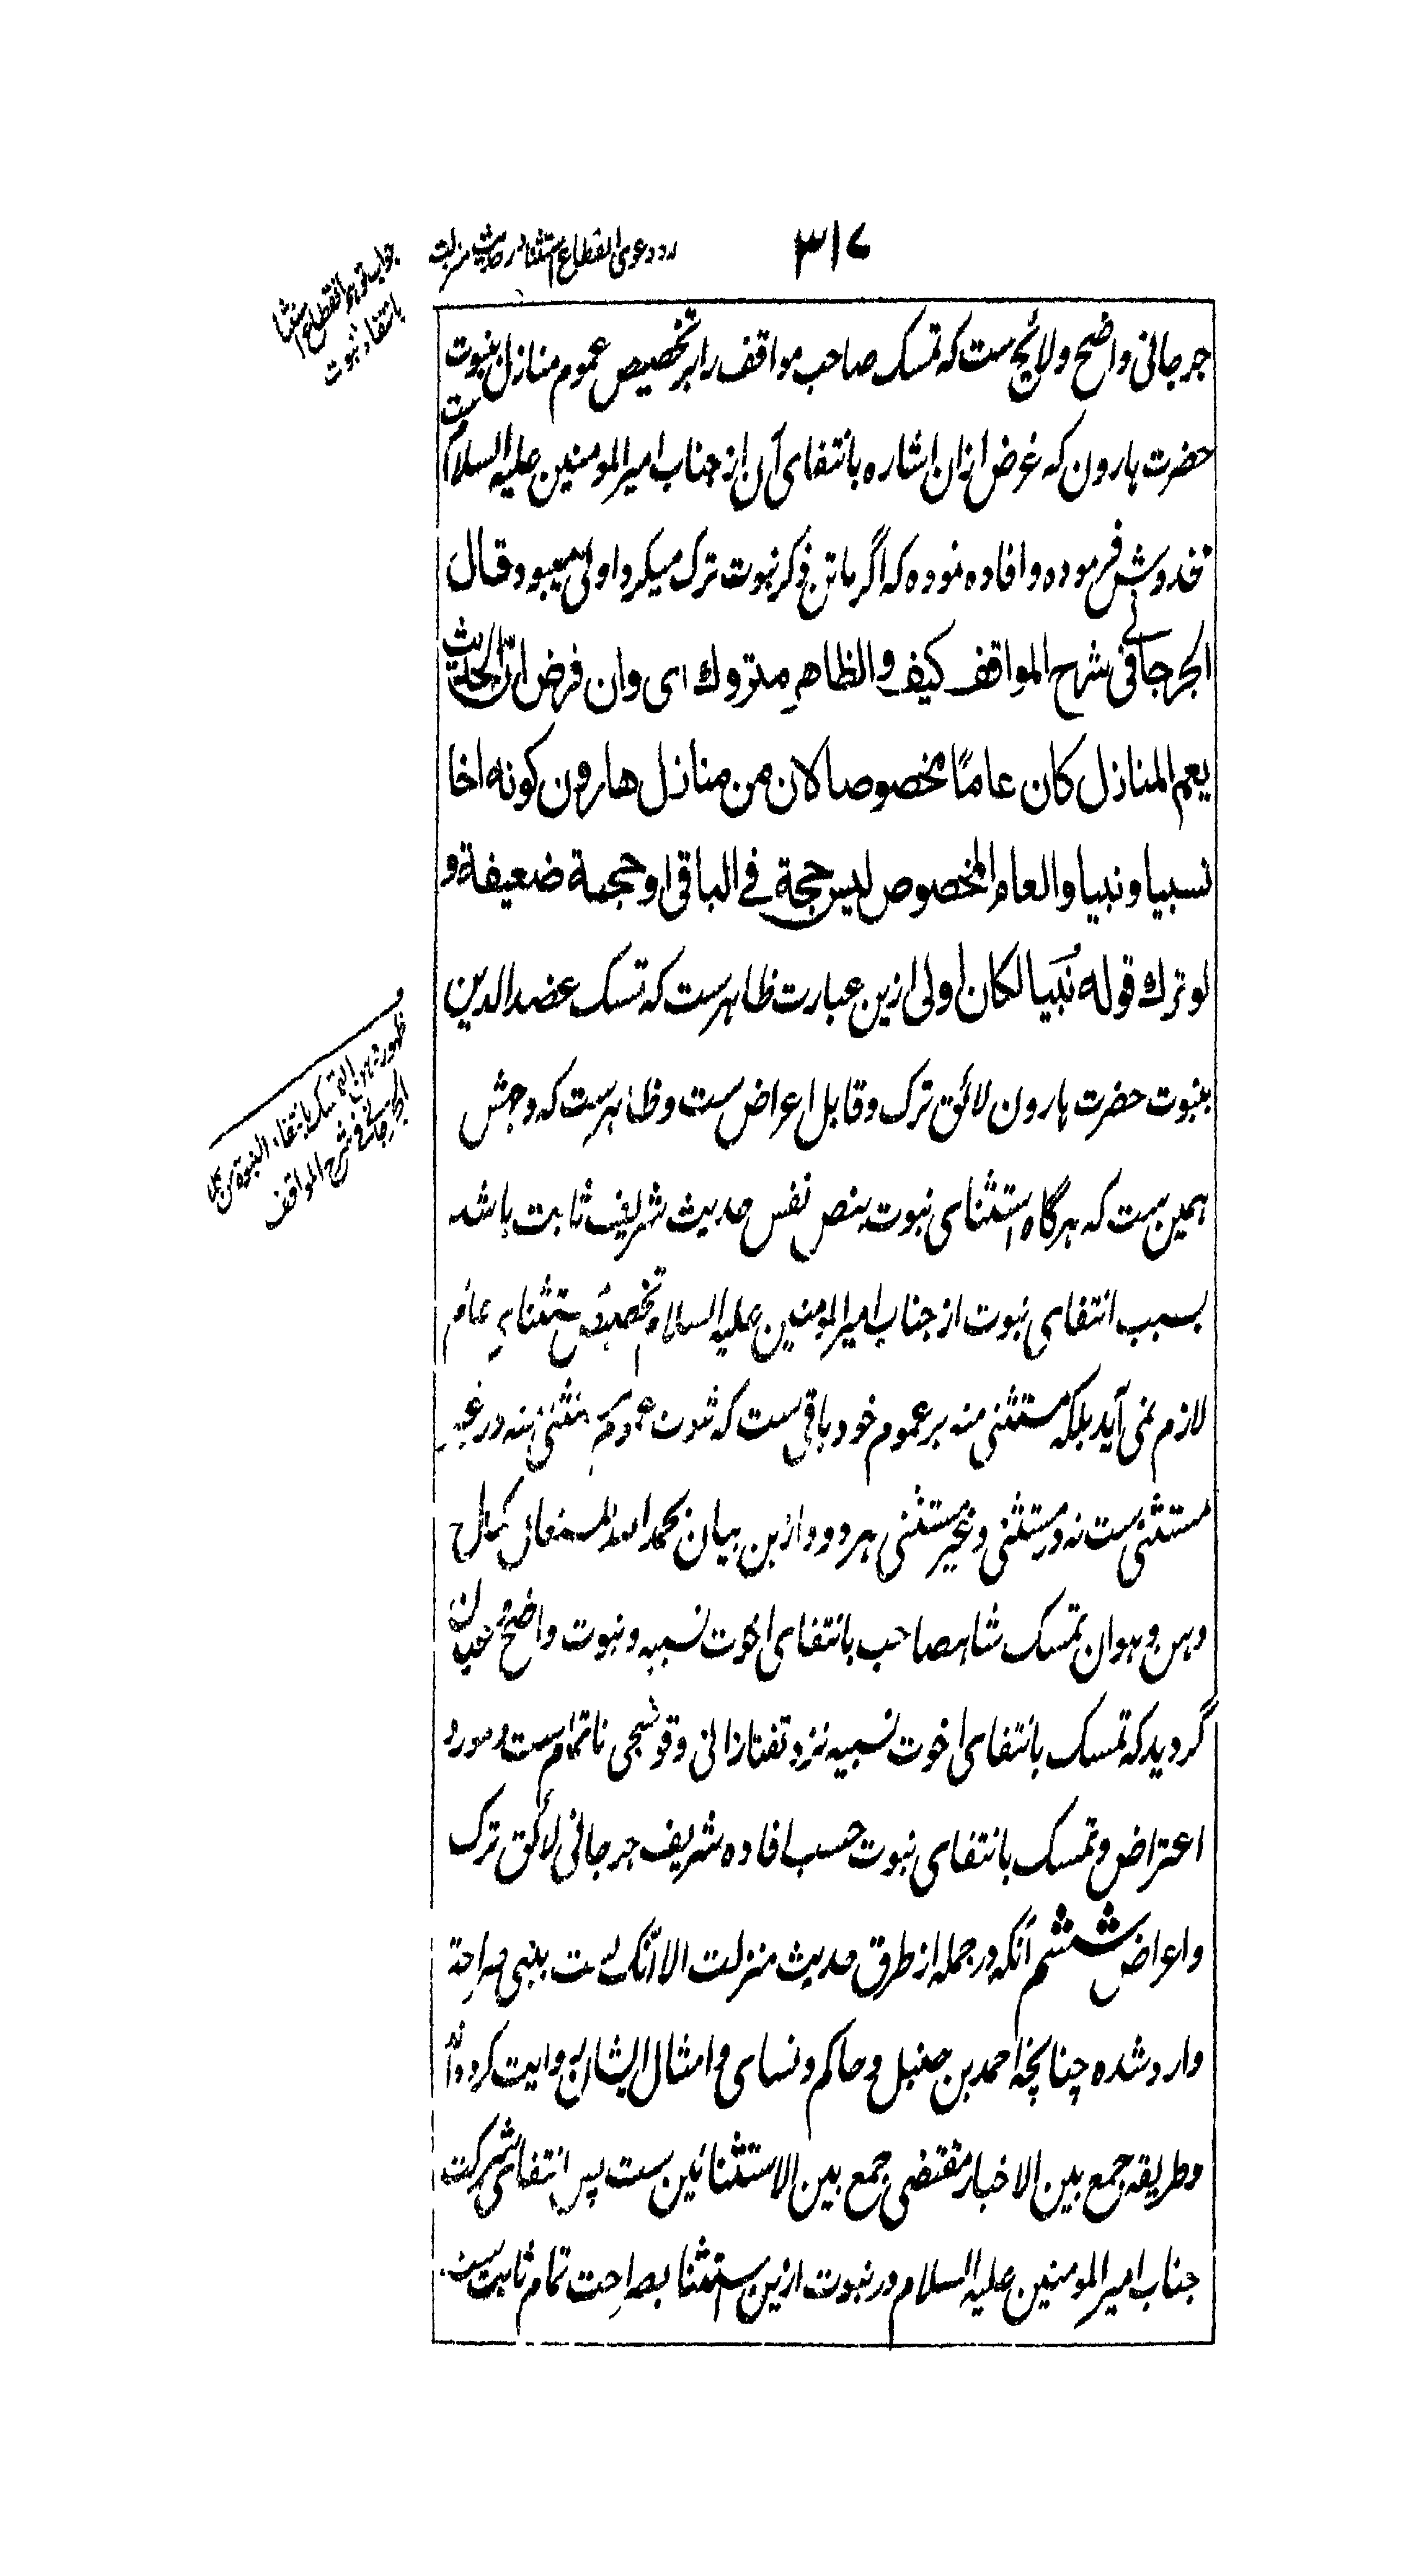 ۳۱۷
رد دعوی انقطاع استثنا در حدیث منزلت
جواب توهم انقطاع استثنا
بانتفاء نبوت
جرجانی واضح و لائح ست که تمسک صاحب مواقف را بر تخصیص عموم منازل بنبوت
حضرت هارون که غرض ازان اشاره بانتفای آن از جناب امیرالمومنین علیه السلام ست
مخدوش فرموده و افاده نموده که اگر ماتن ذکر نبوت ترک میکرد اولی میبود قال
الجرجانی فی شرح المواقف کیف والظاهر متروك ای وان فرض ان الحدیث
یعم المنازل کان عامًا مخصوصا لان من منازل هارون کونه اخا
نسبیا و نبیا والعام المخصوص لیس حجة فی الباقی او حجة ضعیفة و
لو ترك قوله نبیا لکان اولی ازین عبارت ظاهرست که تمسک عضد الدین
بنبوت حضرت هارون لائق ترک و قابل اعراض ست و ظاهرست که وجهش
همین ست که هرگاه استثنای نبوت بنص نفس حدیث شریف ثابت باشد
بسبب انتفای نبوت از جناب امیرالمومنین علیه السلام تخصیص عام
لازم نمی آید بلکه مستثنی منه بر عموم خود باقی ست که در غیر
مستثنی ست نه در مستثنی و غیر مستثنی هر دو و ازین بیان بحمد الله المستعان کمال
وهن و هوان تمسک شاهصاحب بانتفای اخوت نسبیه و نبوت واضح و عیان
گردید که تمسک بانتفای اخوت نسبیه نزد تفتازانی و قوشجی ناتمام ست و مورد
اعتراض و تمسک بانتفای نبوت حسب افاده شریف جرجانی لائق ترک
و اعراض ششم آنکه در جمله از طرق حدیث منزلت الا انّک لست بنبی صراحة
وارد شده چنانچه احمد بن حنبل و حاکم و نسای و امثال ایشان روایت کرده‌اند
و طریقه جمع بین الاخبار مقتضی جمع بین الاستثنائین ست پس انتفای شرکت
جناب امیرالمومنین علیه السلام در نبوت ازین استثنا بصراحت تمام ثابت ست
ظهور تهوین التمسک بانتفاء النبوة من کلام
الجرجانی فی شرح المواقف